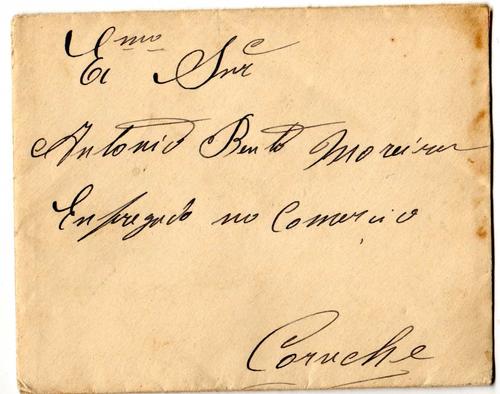 Exmo Snr
Antonio Bento Moreira
Enpregado no Comercio
Coruche